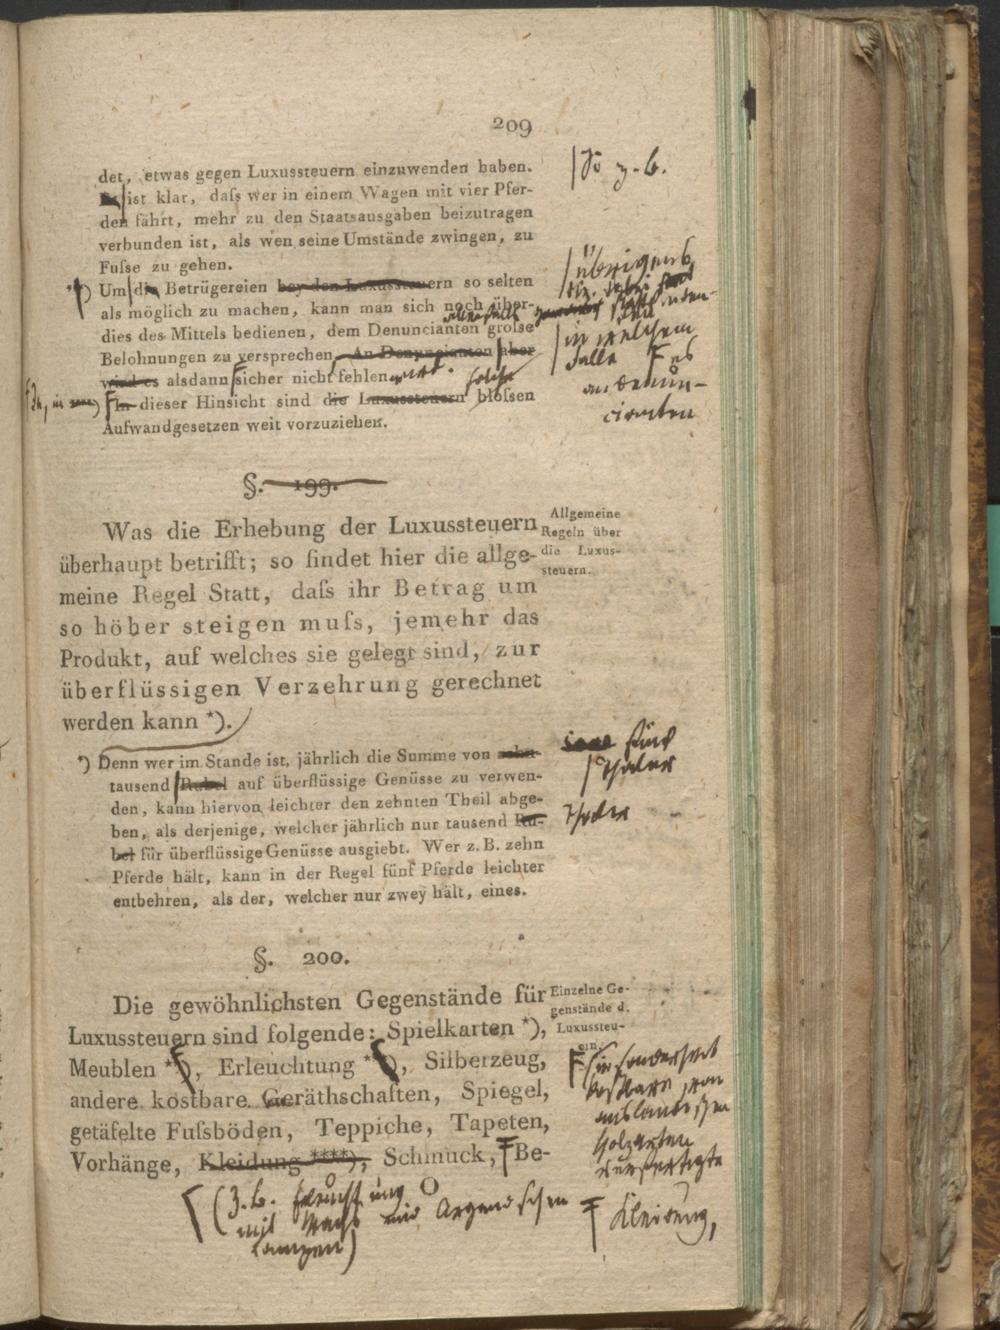 209
det, etwas gegen Luxussteuern einzuwenden haben.
Es ist klar, daſs wer in einem Wagen mit vier Pfer-
den fährt, mehr zu den Staatsausgaben beizutragen
verbunden ist, als wen seine Umstände zwingen, zu
Fuſse zu gehen.
So z. b.
*) Um die Betrügereien bey den Luxussteuern so selten
als möglich zu machen, kann man sich noch über-
dies des Mittels bedienen, dem Denuncianten groſse
Belohnungen zu versprechen. An Denuncianten aber
wird es alsdann sicher nicht fehlen
In dieser Hinsicht sind die Luxussteuern bloſsen
Aufwandgesetzen weit vorzuziehen.
übrigens
in welchem
Falle es
an Denun-
cianten
§. 199.
Was die Erhebung der Luxussteuern
überhaupt betrifft; so findet hier die allge-
meine Regel Statt, daſs ihr Betrag um
so höher steigen muſs, jemehr das
Produkt, auf welches sie gelegt sind, zur
überflüssigen Verzehrung gerechnet
werden kann *).
Allgemeine
Regeln über
die Luxus-
steuern.
*) Denn wer im Stande ist, jährlich die Summe von zehn-
tausend Rubel auf überflüssige Genüsse zu verwen-
den, kann hiervon leichter den zehnten Theil abge-
ben, als derjenige, welcher jährlich nur tausend Ru-
bel für überflüssige Genüsse ausgiebt. Wer z. B. zehn
Pferde hält, kann in der Regel fünf Pferde leichter
entbehren, als der, welcher nur zwey hält, eines.
fünf
Thaler
Thaler
§. 200.
Die gewöhnlichsten Gegenstände für
Luxussteuern sind folgende: Spielkarten *),
Meublen **), Erleuchtung ***), Silberzeug,
andere kostbare Geräthschaften, Spiegel,
getäfelte Fuſsböden, Teppiche, Tapeten,
Vorhänge, Kleidung ****), Schmuck, Be-
Einzelne Ge-
genstände d.
Luxussteu-
ern.
(insonderheit
kostbare von
ausländischen
Holzarten
verfertigte
Kleidung,
(Z. b. Erleuchtung
mit Wachs und Argandschen
Lampen)